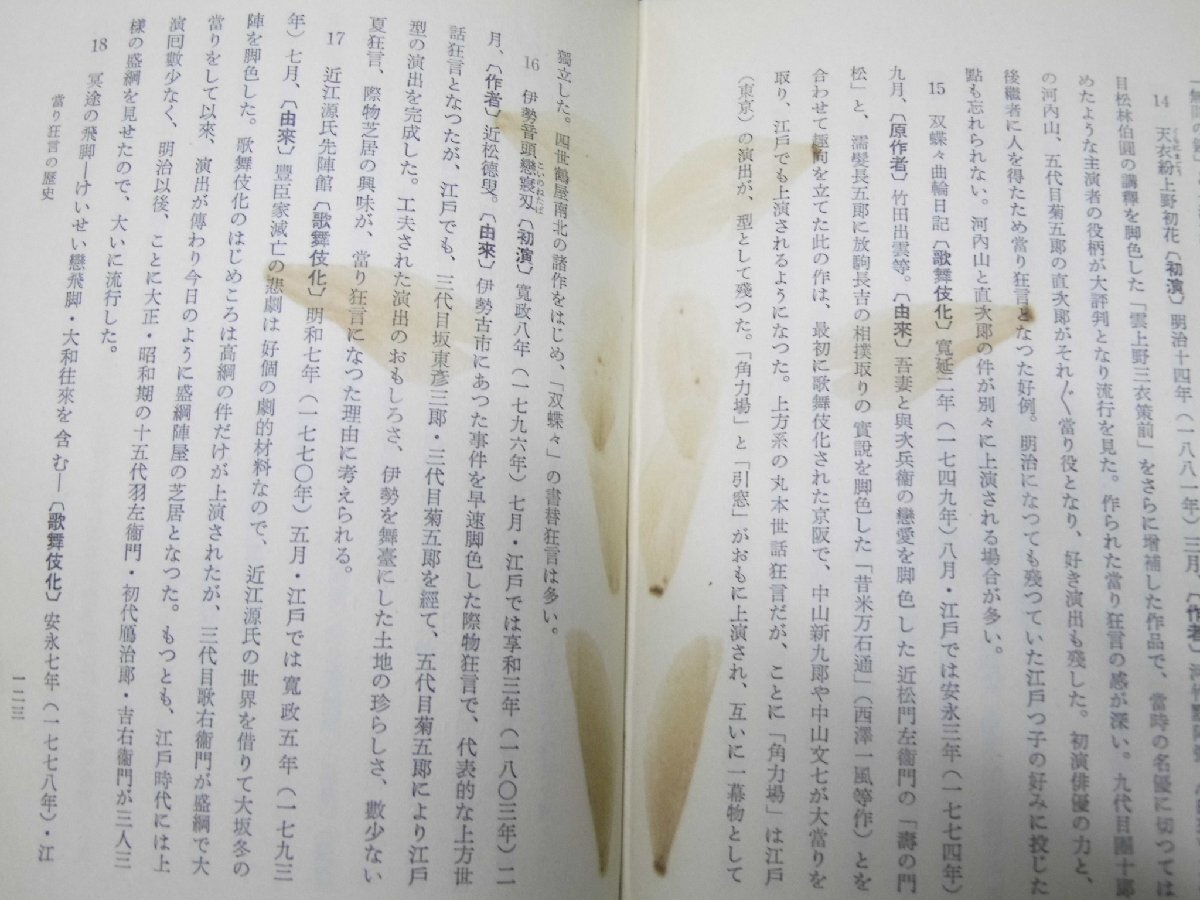 14 天衣紛上野初花〔初演〕明治十四年（一八八一年）三月、〔作者〕
目松林伯圓の講釋を脚色した「雲上野三衣策前」をさらに增補した作品で、當時の名優に切つては
めたような主演者の役柄が大評判となり流行を見た。作られた當り狂言の感が深い。九代目團十郎
の河內山、五代目菊五郎の直次郎がそれ〴〵當り役となり、好き演出も殘した。初演俳優の力と、
後繼者に人を得たため當り狂言となつた好例。明治になつても殘つていた江戶つ子の好みに投じた
點も忘れられない。河內山と直次郎の件が別々に上演される場合が多い。
15 双蝶々曲輪日記〔歌舞伎化〕寬延二年（一七四九年）八月・江戶では安永三年（一七七四年）
九月、〔原作者〕竹田出雲等。〔由來〕吾妻と與次兵衞の戀愛を脚色した近松門左衞門の「壽の門
松」と、濡髮長五郎に放駒長吉の相撲取りの實說を脚色した「昔米万石通」（西澤一風等作）とを
合わせて趣向を立てた此の作は、最初に歌舞伎化された京阪で、中山新九郎や中山文七が大當りを
取り、江戶でも上演されるようになつた。上方系の丸本世話狂言だが、ことに「角力場」は江戶
（東京）の演出が、型として殘つた。「角力場」と「引窓」がおもに上演され、互いに一幕物として
獨立した。四世鶴屋南北の諸作をはじめ、「双蝶々」の書替狂言は多い。
16 伊勢音頭戀寢刃〔初演〕寬政八年（一七九六年）七月・江戶では享和三年（一八〇三年）二
こいのねたば
月、〔作者〕近松德叟。〔由來〕伊勢古市にあつた事件を早速脚色した際物狂言で、代表的な上方世
話狂言となつたが、江戶でも、三代目坂東彥三郎・三代目菊五郎を經て、五代目菊五郎により江戶
型の演出を完成した。工夫された演出のおもしろさ、伊勢を舞臺にした土地の珍らしさ、數少ない
夏狂言、際物芝居の興味が、當り狂言になつた理由に考えられる。
17 近江源氏先陣館〔歌舞伎化〕明和七年（一七七〇年）五月・江戶では寬政五年（一七九三
年）七月、〔由來〕豐臣家滅亡の悲劇は好個の劇的材料なので、近江源氏の世界を借りて大坂冬の
陣を脚色した。歌舞伎化のはじめころは高綱の件だけが上演されたが、三代目歌右衞門が盛綱で大
當りをして以來、演出が傳わり今日のように盛綱陣屋の芝居となつた。もつとも、江戶時代には上
演回數少なく、明治以後、ことに大正・昭和期の十五代羽左衞門・初代鴈治郎・吉右衞門が三人三
樣の盛綱を見せたので、大いに流行した。
18 冥途の飛脚―けいせい戀飛脚・大和往來を含む―〔歌舞伎化〕安永七年（一七七八年）・江
當り狂言の歷史
一二三